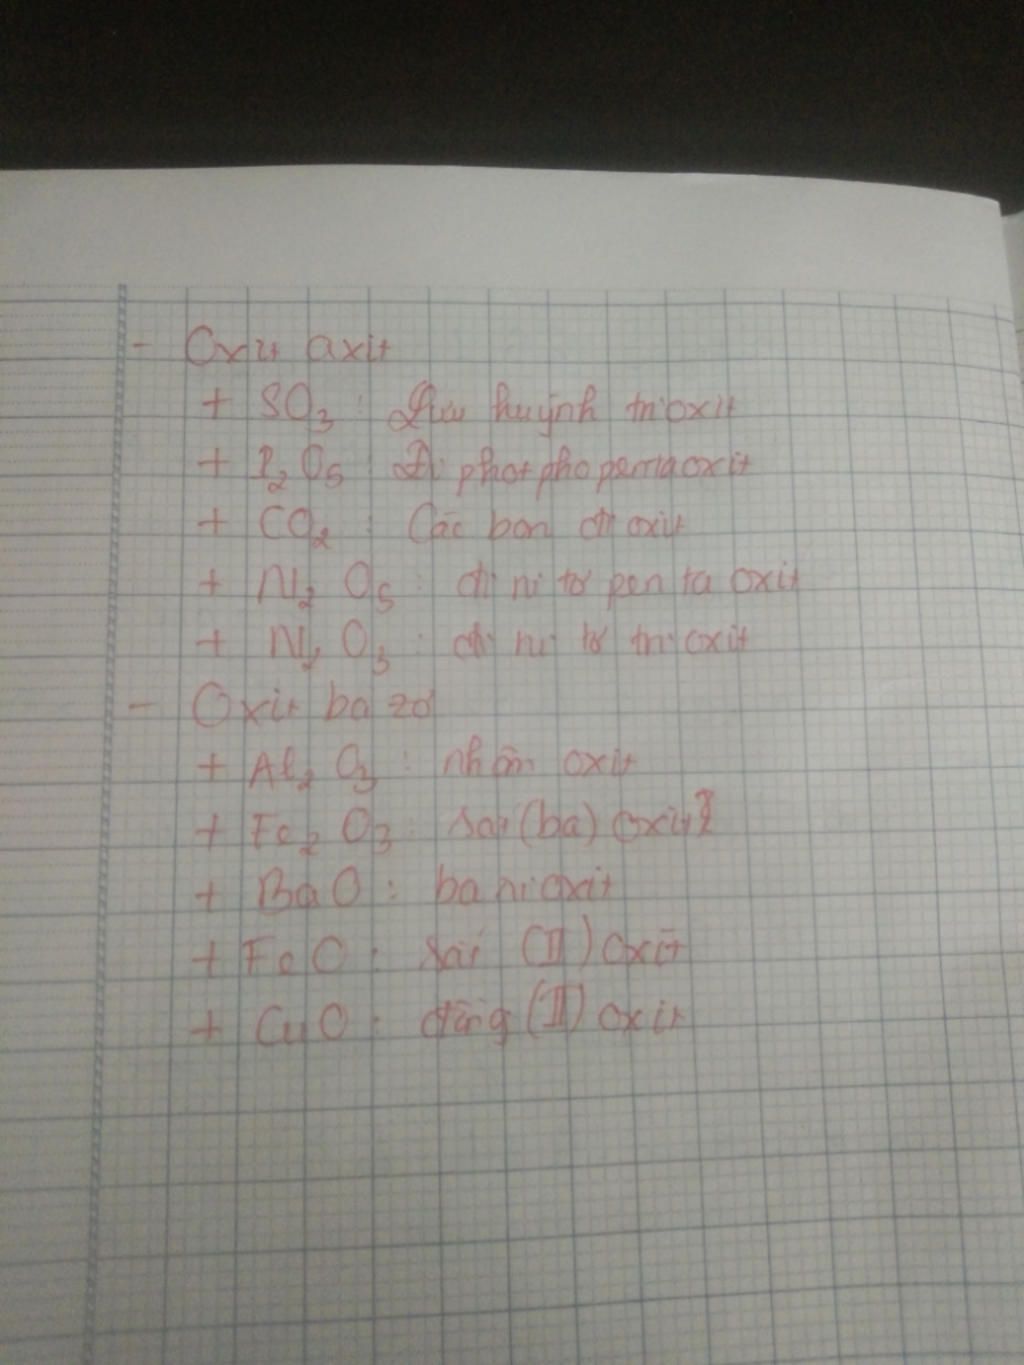 - Oxit axit
+ SO3 : Lưu huỳnh tri oxit
+ P2 O5 Đi phot pho penta oxit
+ CO2 : Các bon đi oxit
+ N2 O5 : đi ni tơ pen ta oxit
+ N2 O3 : đi ni tơ tri oxit
- Oxit ba zơ
+ Al2 O3 : nhôm oxit
+ Fe2 O3 : sắt (ba) oxit
+ BaO : ba ri oxit
+ FeO : sắt (II) oxit
+ CuO : đồng (II) oxit